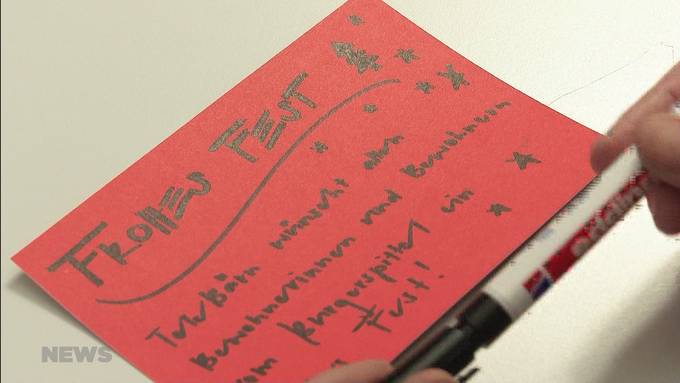 FROHES FEST
TeleBärn wünscht allen
Bewohnerinnen und Bewohnern
vom Burgerspittel ein
Fest!
edding
NEWS